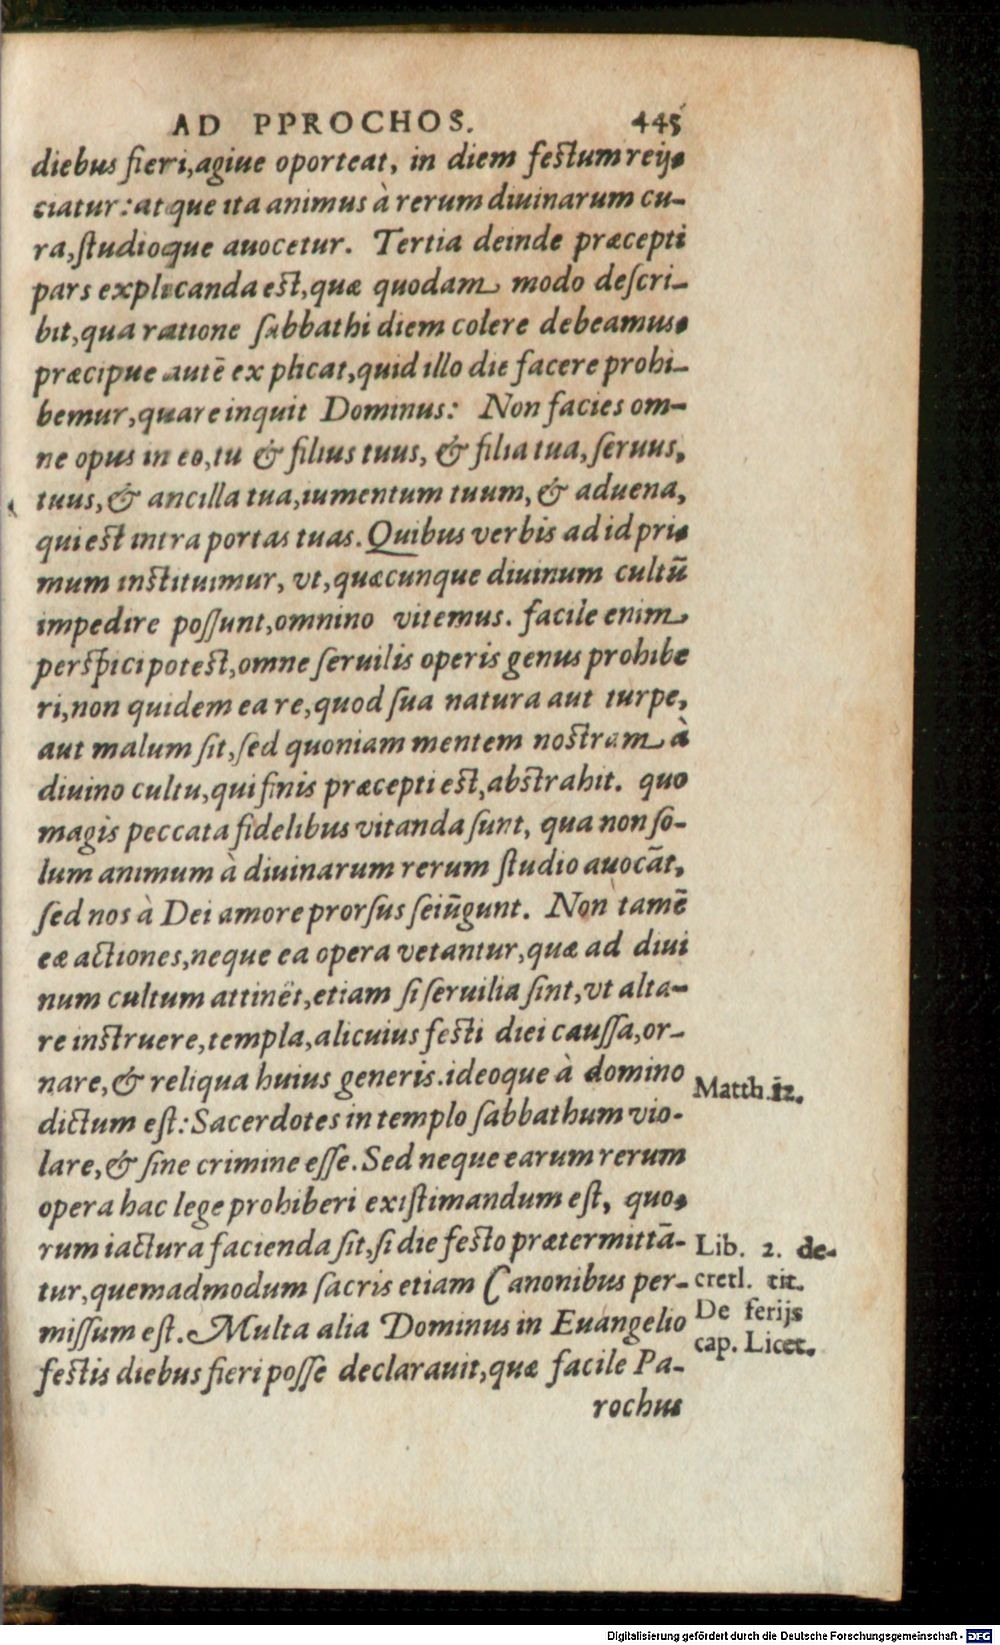 AD PPROCHOS. 445
diebus fieri,agiue oporteat, in diem festum reij-
ciatur: atque ita animus à rerum diuinarum cu-
ra,studioque auocetur. Tertia deinde præcepti
pars explicanda est,quæ quodam modo descri-
bit,qua ratione sabbathi diem colere debeamus.
præcipue autē explicat,quid illo die facere prohi-
bemur,quare inquit Dominus: Non facies om-
ne opus in eo,tu & filius tuus, & filia tua, seruus,
tuus, & ancilla tua,iumentum tuum, & aduena,
qui est intra portas tuas. Quibus verbis ad id pri-
mum instituimur, vt,quæcunque diuinum cultū
impedire possunt,omnino vitemus. facile enim
perspici potest,omne seruilis operis genus prohibe
ri,non quidem ea re,quod sua natura aut turpe,
aut malum sit,sed quoniam mentem nostram à
diuino cultu,qui finis præcepti est,abstrahit. quo
magis peccata fidelibus vitanda sunt, qua non so-
lum animum à diuinarum rerum studio auocāt,
sed nos à Dei amore prorsus seiūgunt. Non tamē
eæ actiones,neque ea opera vetantur,quæ ad diui
num cultum attinēt,etiam si seruilia sint,vt alta-
re instruere,templa,alicuius festi diei caussa,or-
nare, & reliqua huius generis.ideoque à domino
dictum est: Sacerdotes in templo sabbathum vio-
lare, & sine crimine esse. Sed neque earum rerum
opera hac lege prohiberi existimandum est, quo-
rum iactura facienda sit,si die festo prætermittā-
tur,quemadmodum sacris etiam Canonibus per-
missum est. Multa alia Dominus in Euangelio
festis diebus fieri posse declarauit,quæ facile Pa-
rochus
Matth.12.
Lib. 2. de-
cretl. tit.
De ferijs
cap. Licet.
Digitalisierung gefördert durch die Deutsche Forschungsgemeinschaft - DFG